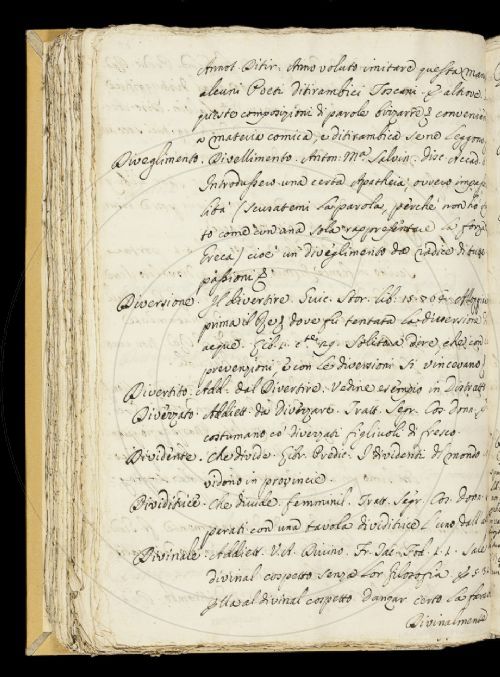 Annot. Ditir. Anno voluto imitare questa man
alcuni Poeti ditirambici Toscani. E altrove
queste composizioni di parole bizzarre, e convenien
a materia comica, e ditirambica se ne leggono
Diveglimento. Divellimento. Anton: M.ª Salvin. Disc. Accad.
Introdussero una certa Apatheia, ovvero impas
lità (scusatemi la parola, perchè non ho
to come con una sola rappresentare la forz
Greca) cioè un diveglimento da radice di tutte
passioni &
Diversione. Il divertire. Guic. Stor. lib. 15.
prima il Re, dove fù tentata la diversione
acque. Soliteva dire, che con
prevenzioni e con le diversioni si vincevano
Divertito. Add. dal Divertire. Vedine esempio in Distratt
Divezzato. Addiett. da Divezzare. Tratt. Segr. Cos. Don.
costumano co' divezzati figliuoli di fresco.
Dividente. Che divide. Libr. Predic. I dividenti il mondo
vidono in provincie.
Dividitrice. Che divide, femminil. Tratt. Segr. Cos. Donn.
perati con una tavola dividitrice l'uno dall'al
Divinale. Addiett. V.A. Divino. Fr. Iac. Tod. 1. 1.
divinal cospetto senza lor filosofia.
Ella al divinal cospetto danzar certo la fara
Divinalmente